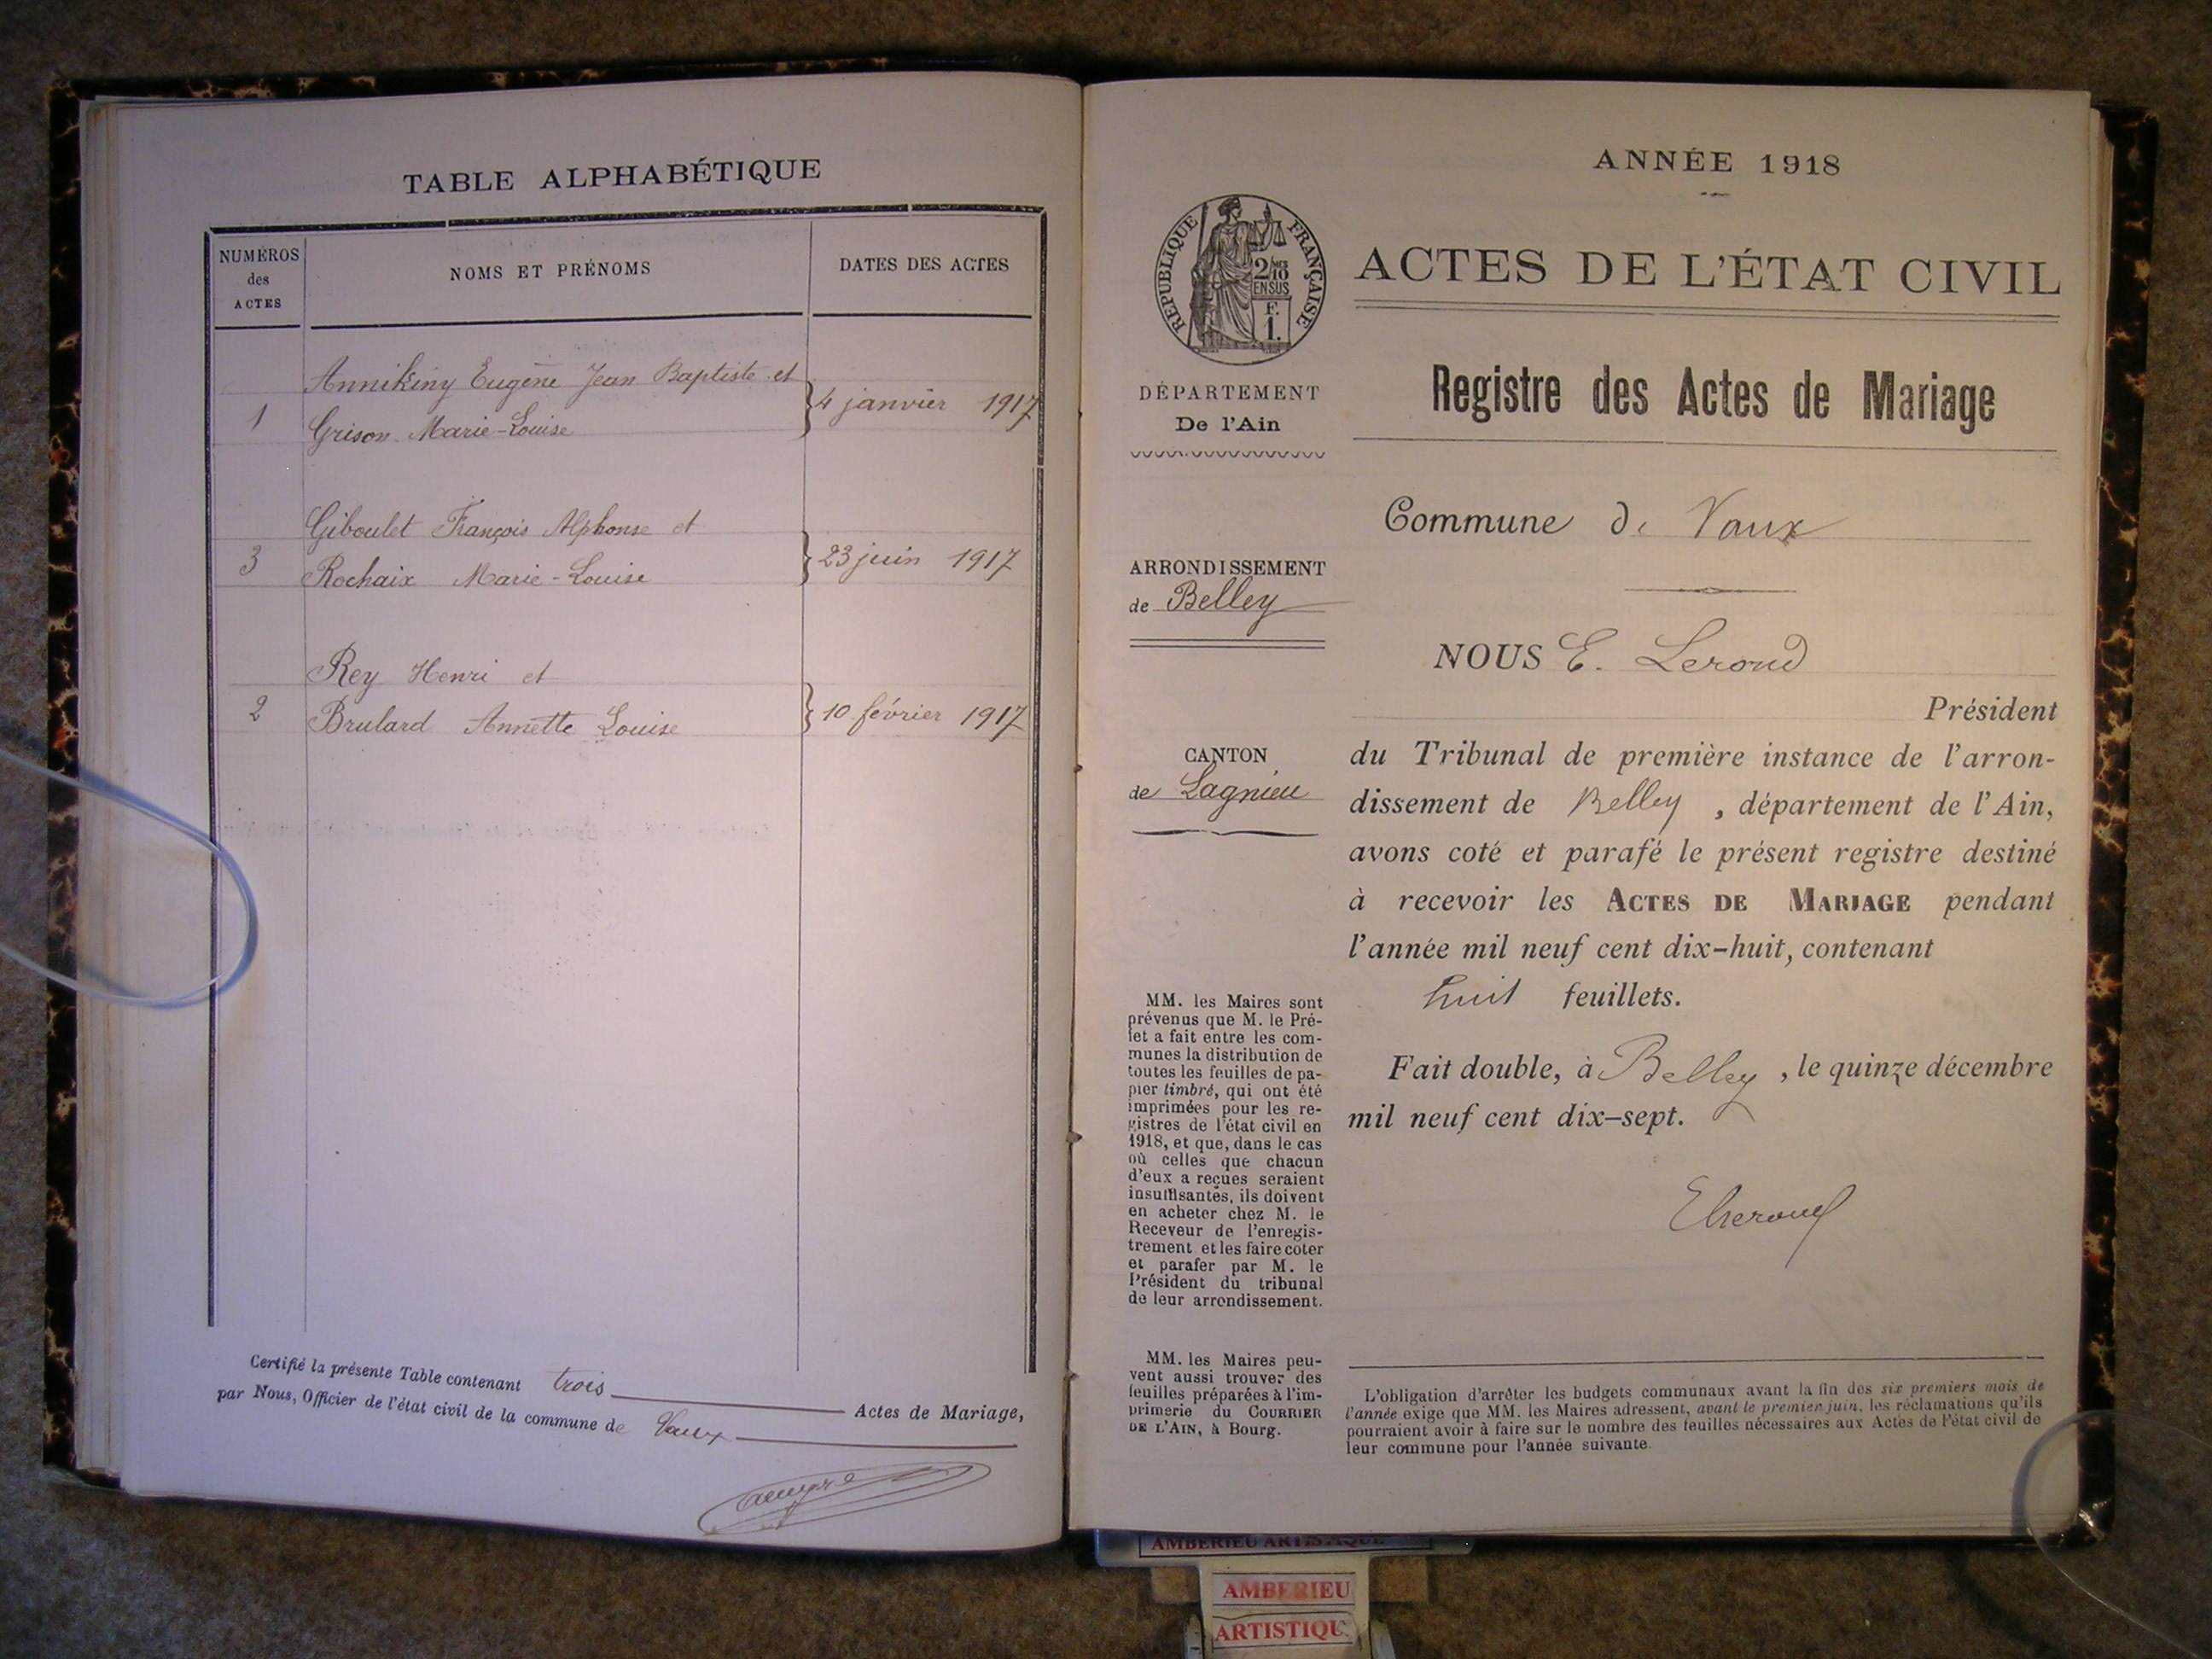 TABLE ALPHABÉTIQUE
NUMÉROS
des
ACTES
NOMS ET PRÉNOMS
DATES DES ACTES
Annikiny Eugène Jean Baptiste et
1
Grison Marie-Louise
4 janvier 1917
Giboulet François Alphonse et
3
Rochaix Marie-Louise
23 juin 1917
Rey Henri et
2
Brulard Annette Louise
10 février 1917
Certifié la présente Table contenant trois Actes de Mariage,
par Nous, Officier de l'état civil de la commune de Vaux
ANNÉE 1918
RÉPUBLIQUE FRANÇAISE
2/10
EN SUS
F.
1.
ACTES DE L'ÉTAT CIVIL
DÉPARTEMENT
De l'Ain
Registre des Actes de Mariage
Commune de Vaux
ARRONDISSEMENT
de Belley
NOUS E. Lerond
Président
CANTON
de Lagnieu
du Tribunal de première instance de l'arron-
dissement de Belley, département de l'Ain,
avons coté et parafé le présent registre destiné
à recevoir les ACTES DE MARIAGE pendant
l'année mil neuf cent dix-huit, contenant
huit feuillets.
Fait double, à Belley, le quinze décembre
mil neuf cent dix-sept.
MM. les Maires sont
prévenus que M. le Pré-
fet a fait entre les com-
munes la distribution de
toutes les feuilles de pa-
pier timbré, qui ont été
imprimées pour les re-
gistres de l'état civil en
1918, et que, dans le cas
où celles que chacun
d'eux a reçues seraient
insuffisantes, ils doivent
en acheter chez M. le
Receveur de l'enregis-
trement et les faire coter
et parafer par M. le
Président du tribunal
de leur arrondissement.
MM. les Maires peu-
vent aussi trouver des
feuilles préparées à l'im-
primerie du COURRIER
DE L'AIN, à Bourg.
L'obligation d'arrêter les budgets communaux avant la fin des six premiers mois de
l'année exige que MM. les Maires adressent, avant le premier juin, les réclamations qu'ils
pourraient avoir à faire sur le nombre des feuilles nécessaires aux Actes de l'état civil de
leur commune pour l'année suivante.
AMBERIEU ARTISTIQUE
AMBERIEU
ARTISTIQU